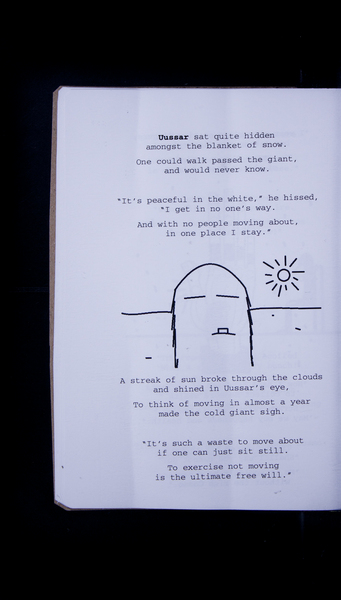 Uussar sat quite hidden
amongst the blanket of snow.
One could walk passed the giant,
and would never know.
"It's peaceful in the white," he hissed,
"I get in no one's way.
And with no people moving about,
in one place I stay."
A streak of sun broke through the clouds
and shined in Uussar's eye,
To think of moving in almost a year
made the cold giant sigh.
"It's such a waste to move about
if one can just sit still.
To exercise not moving
is the ultimate free will."